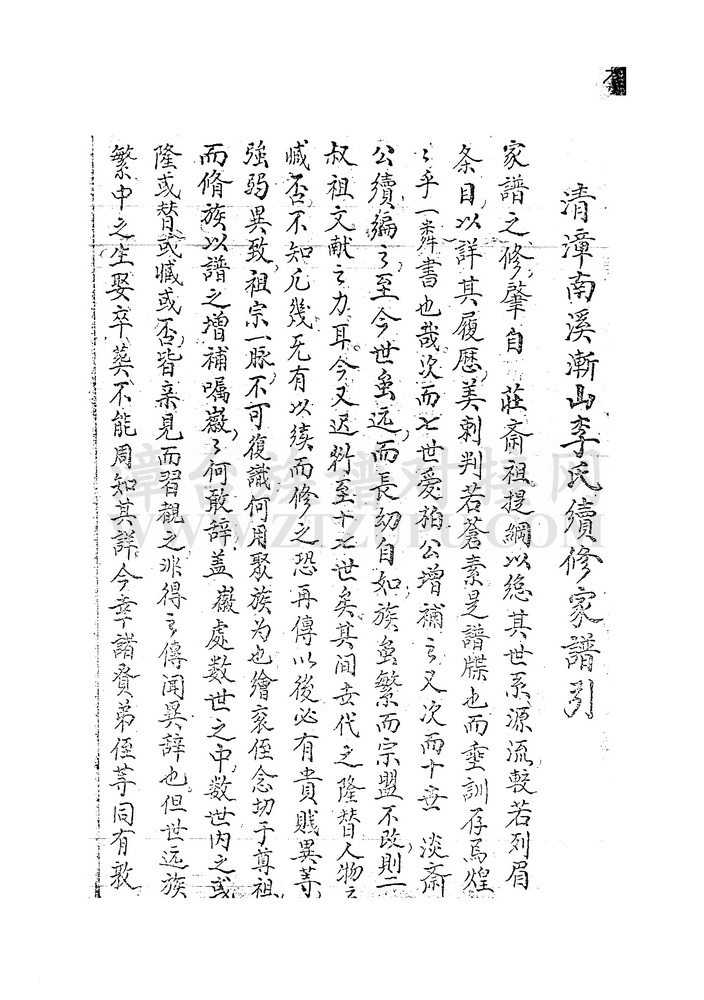 清漳南溪漸山李氏續修家譜引
家譜之修肇自 莊斎祖提綱以總其世系源流較若列眉
条目以詳其履歷美刺判若蒼素是譜牒也而垂訓存焉煌
〻乎一舞書也哉次而七世愛柏公增補之又次而十世 淡斎
公續編之至今世虽远而長幼自如族虽繁而宗盟不改則二
叔祖文献之力耳今又迟歷至十七世矣其间世代之隆替人物之
臧否不知凡幾无有以续而修之恐再傳以後必有貴賤異等
強弱異致祖宗一脉不可復識何用聚族为也繪衮侄念切于尊祖
而脩族以譜之增補嘱巖〻何敢辞盖 巖處数世之中数世内之或
隆或替或臧或否皆亲見而習觀之非得之傳闻異辞也但世远族
繁中之生娶卒葬不能周知其詳今幸諸賢弟侄等同有敦
漳台族譜对接网
WWW.ZTZUPU.COM